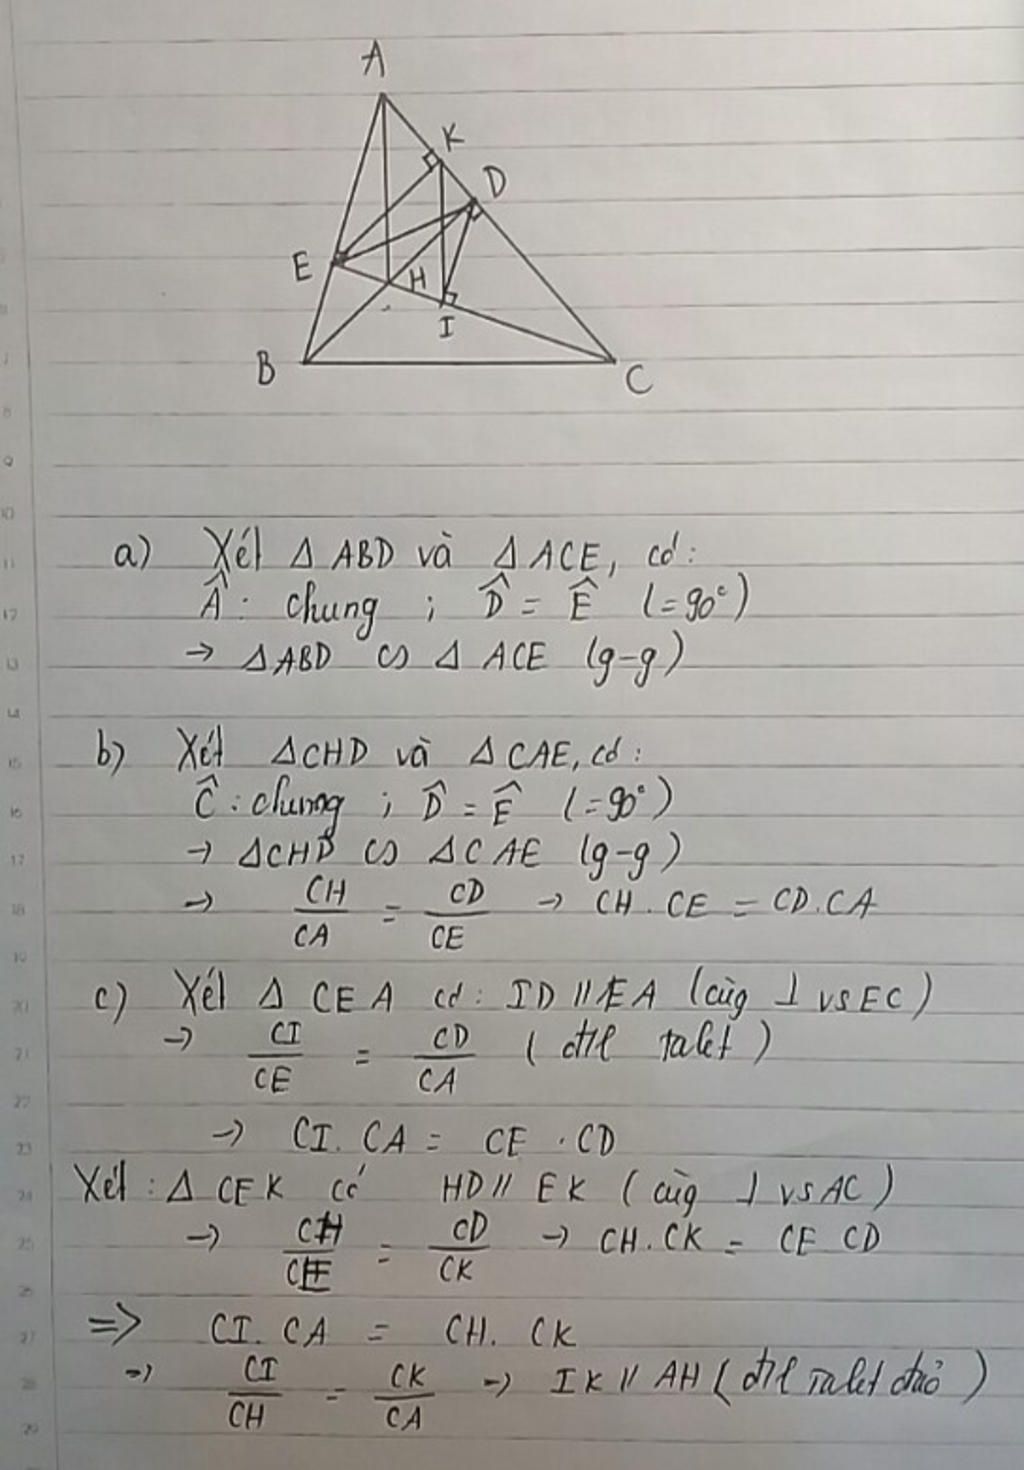 A
K
D
E
H
I
B
C
a) Xét Δ ABD và Δ ACE, có:
Â: chung ; D̂ = Ê (=90°)
→ ΔABD ∽ Δ ACE (g-g)
b) Xét ΔCHD và Δ CAE, có:
Ĉ: chung ; D̂ = Ê (=90°)
→ ΔCHD ∽ ΔCAE (g-g)
→ CH/CA = CD/CE → CH.CE = CD.CA
c) Xét Δ CEA có: ID // EA (cùg ⊥ vs EC)
→ CI/CE = CD/CA (đtl Talet)
→ CI.CA = CE.CD
Xét: Δ CEK có HD // EK (cùg ⊥ vs AC)
→ CH/CE = CD/CK → CH.CK = CE CD
=> CI.CA = CH.CK
→ CI/CH = CK/CA → IK // AH (đtl Talet đảo)